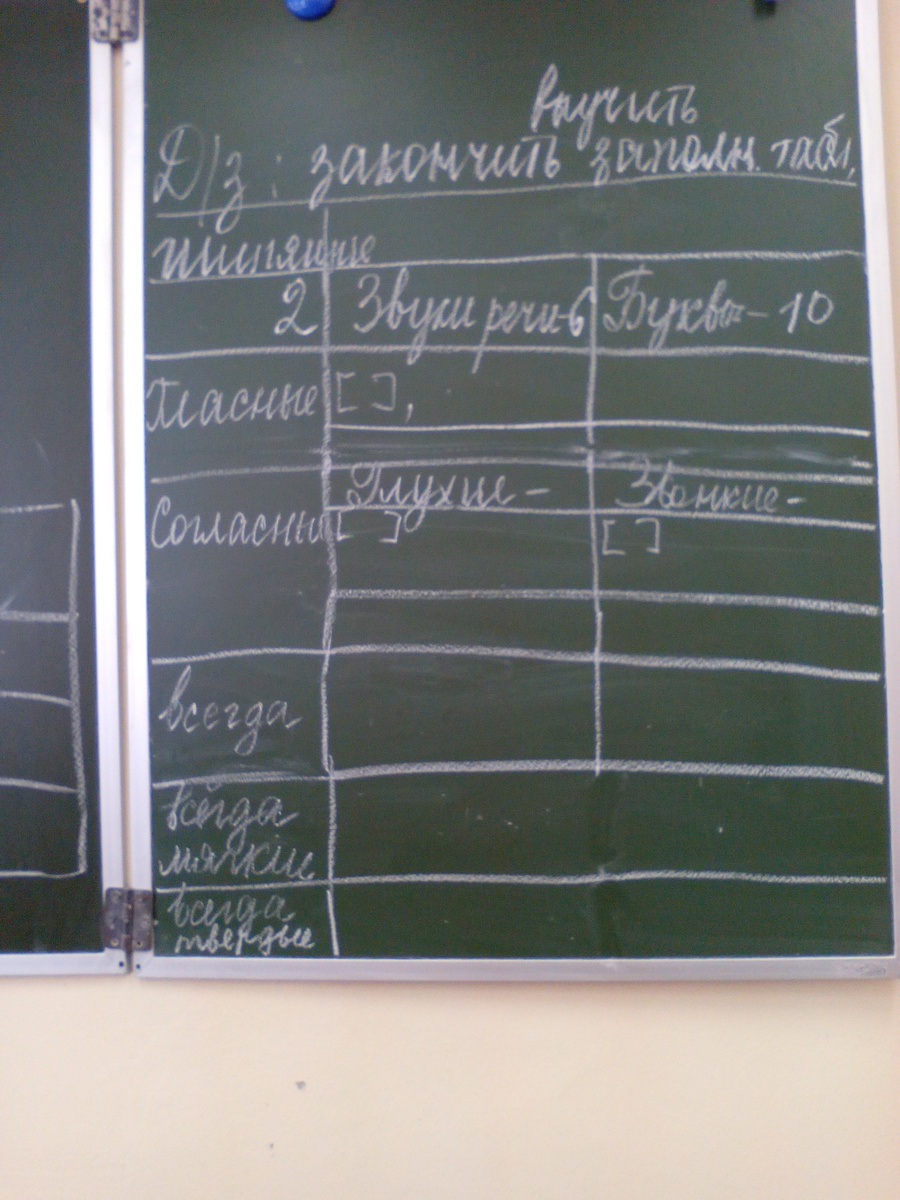 выучить
Д/з: закончить заполн. табл.
шипящие
2 Звуки речи-6 Буквы - 10
Гласные [ ],
Глухие - Звонкие -
Согласны [ ] [ ]
всегда
всегда
мягкие
всегда
твердые